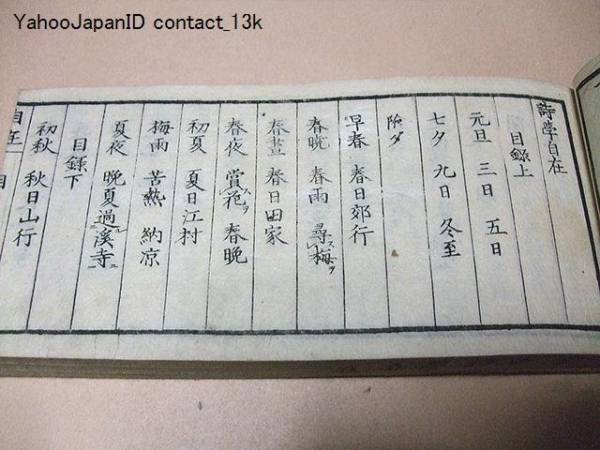 YahooJapanID contact_13k
詩学自在
目録上
元旦 三日 五日
七夕 九日 冬至
除夕
早春 春日郊行
春暁 春雨 尋梅ヲ
春昼 春日田家
春夜 賞花ヲ 春晩
初夏 夏日江村
梅雨 苦熱 納凉
夏夜 晩夏過溪寺
目録下
初秋 秋日山行